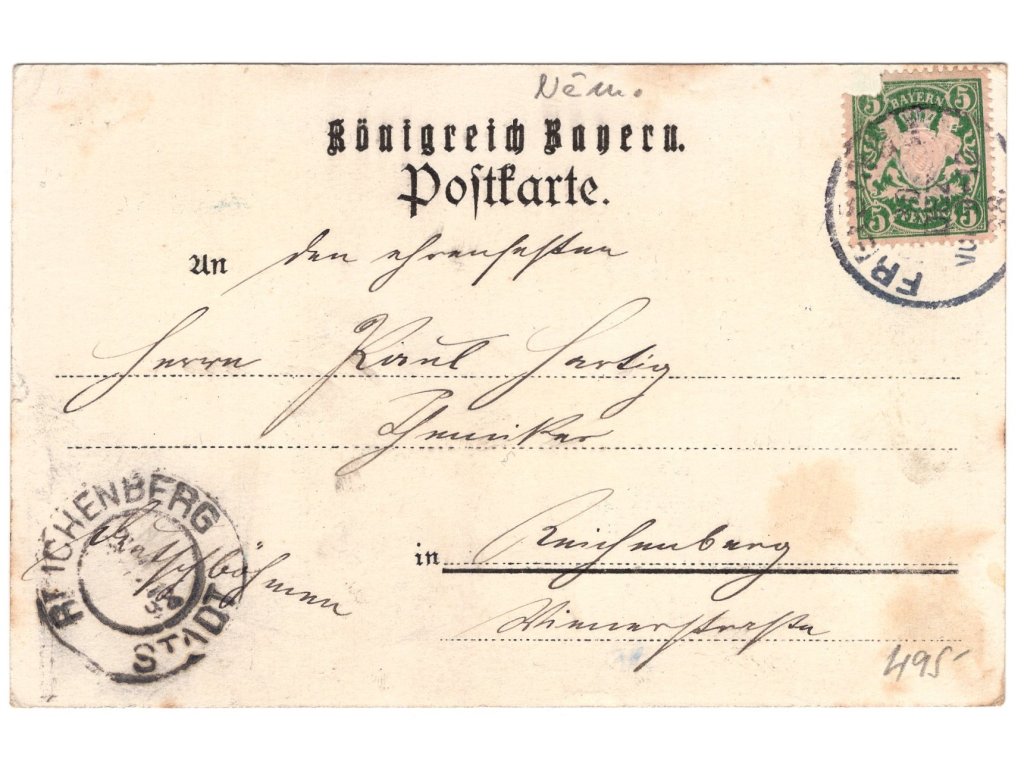 Něm.
Königreich Bayern.
Postkarte.
5 BAYERN 5
5 5
FR
An den ehrenfesten
Herrn Paul Hartig
Chemiker
in Reichenberg
böhmen
Wienerstraße
REICHENBERG
STADT
495-